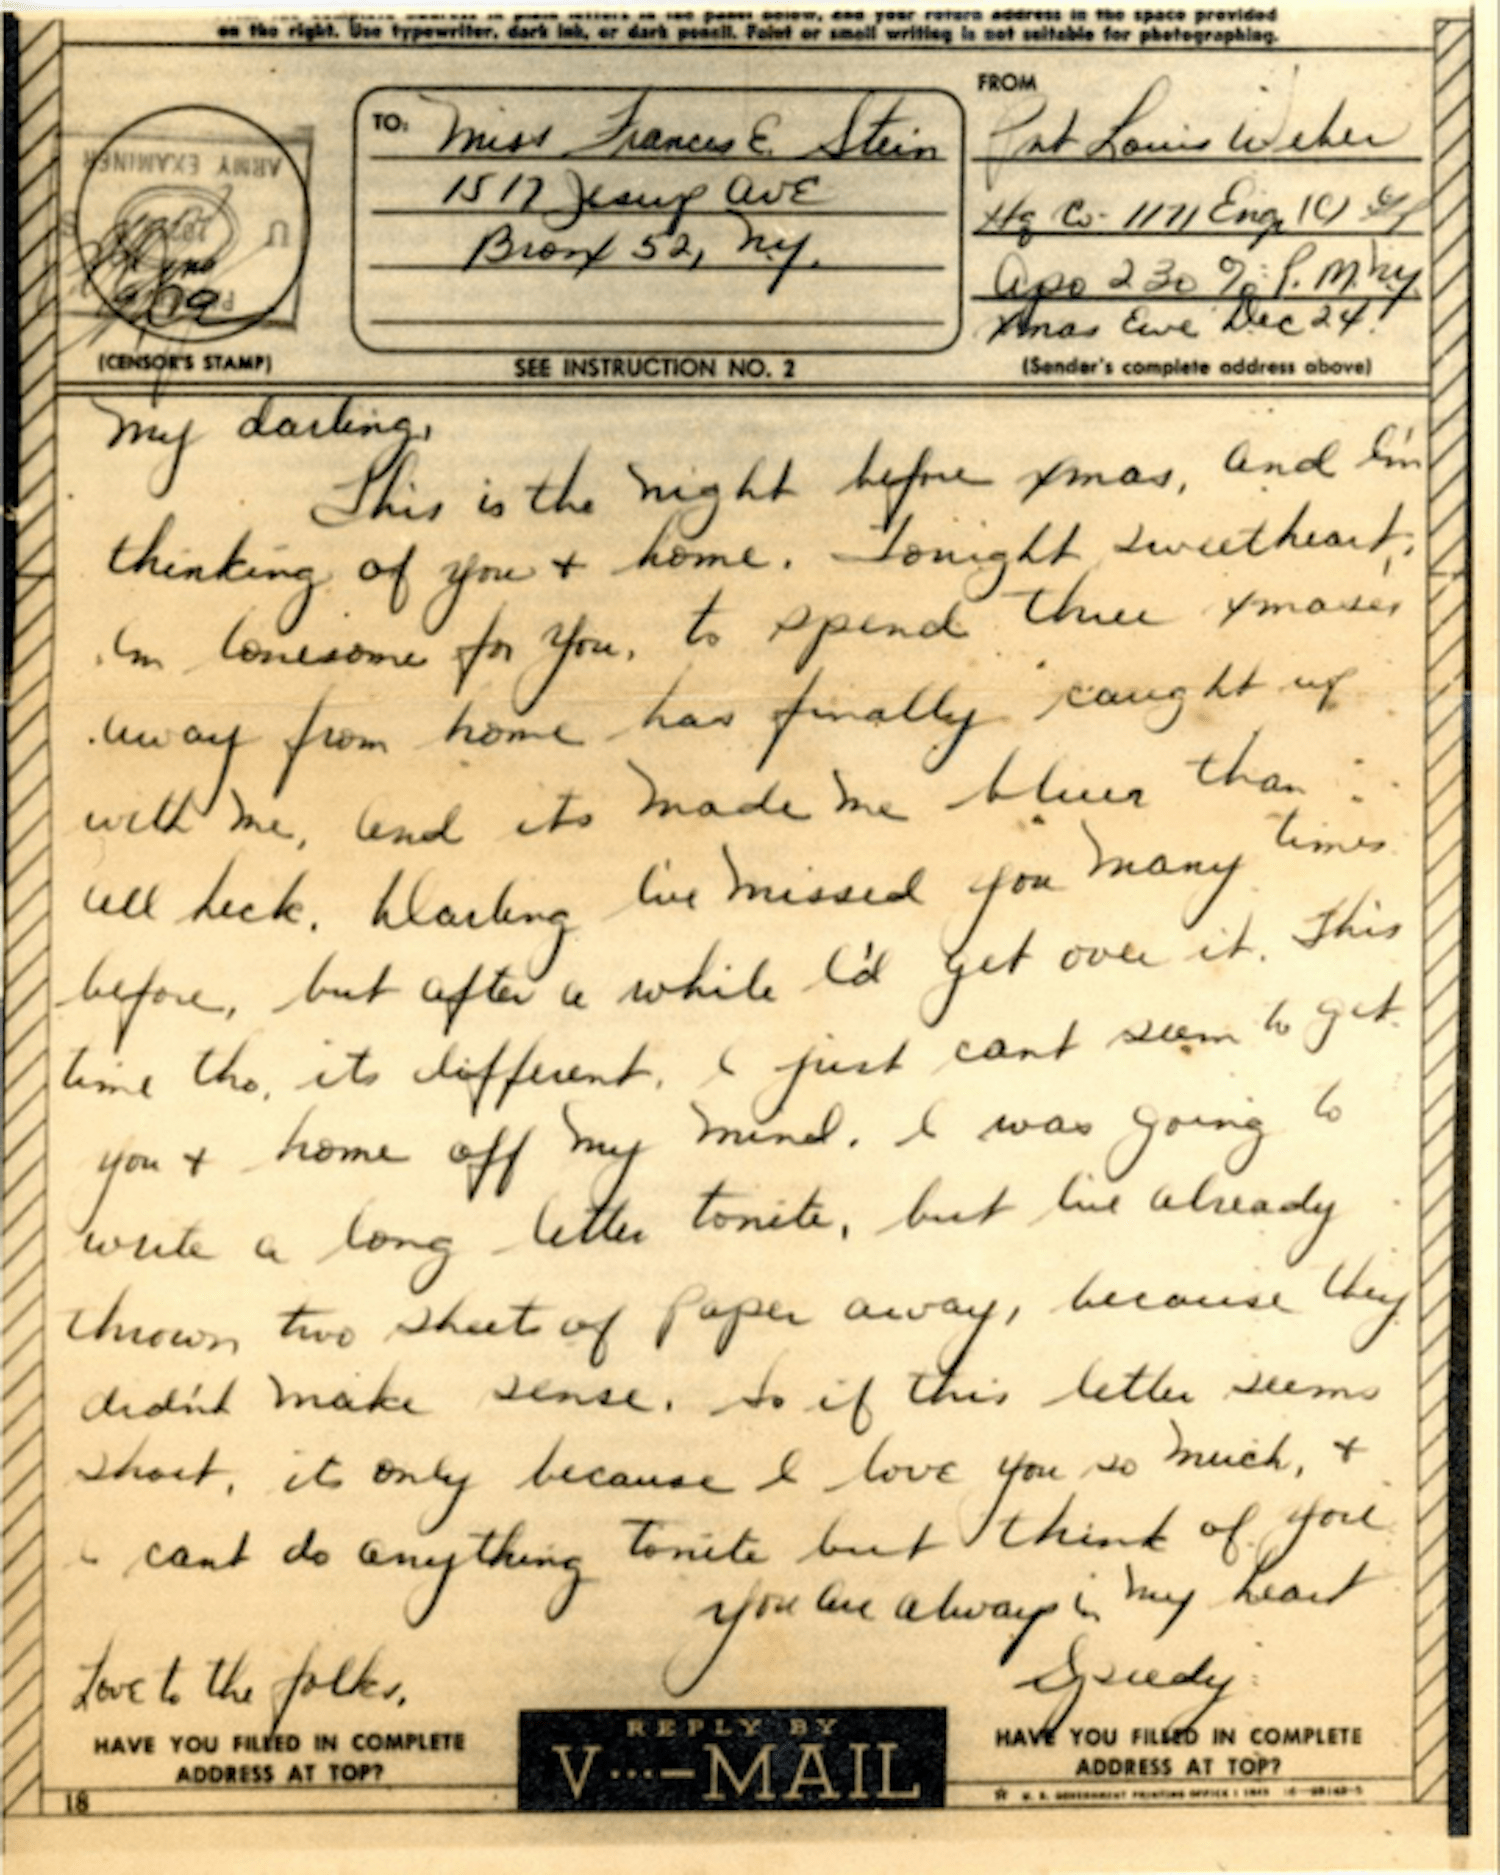 complete address in plain letters in the panel below, and your return address in the space provided
on the right. Use typewriter, dark ink, or dark pencil. Faint or small writing is not suitable for photographing.
FROM
TO: Miss Frances E. Stein
Pvt Louis Weber
1517 Jesup AvE
Hq Co- 1171 Eng. (C) Gp
Bronx 52, Ny.
Apo 230 % P. M. Ny
Xmas Eve Dec 24.
ARMY EXAMINER
U
(CENSOR'S STAMP)
SEE INSTRUCTION NO. 2
(Sender's complete address above)
My darling,
This is the night before xmas, and I'm
thinking of you + home. Tonight sweetheart,
Im lonesome for you, to spend three xmases
away from home has finally caught up
with me, and its made me bluer than
all heck. Darling I've missed you many times
before, but after a while I'd get over it. This
time tho, its different. I just cant seem to get
you + home off my mind. I was going to
write a long letter tonite, but I've already
thrown two sheets of paper away, because they
didn't make sense. So if this letter seems
short, its only because I love you so much, +
I cant do anything tonite but think of you
you are always in my heart
Speedy
Love to the folks.
HAVE YOU FILLED IN COMPLETE
ADDRESS AT TOP?
REPLY BY
V···—MAIL
HAVE YOU FILLED IN COMPLETE
ADDRESS AT TOP?
18
U. S. GOVERNMENT PRINTING OFFICE : 1943